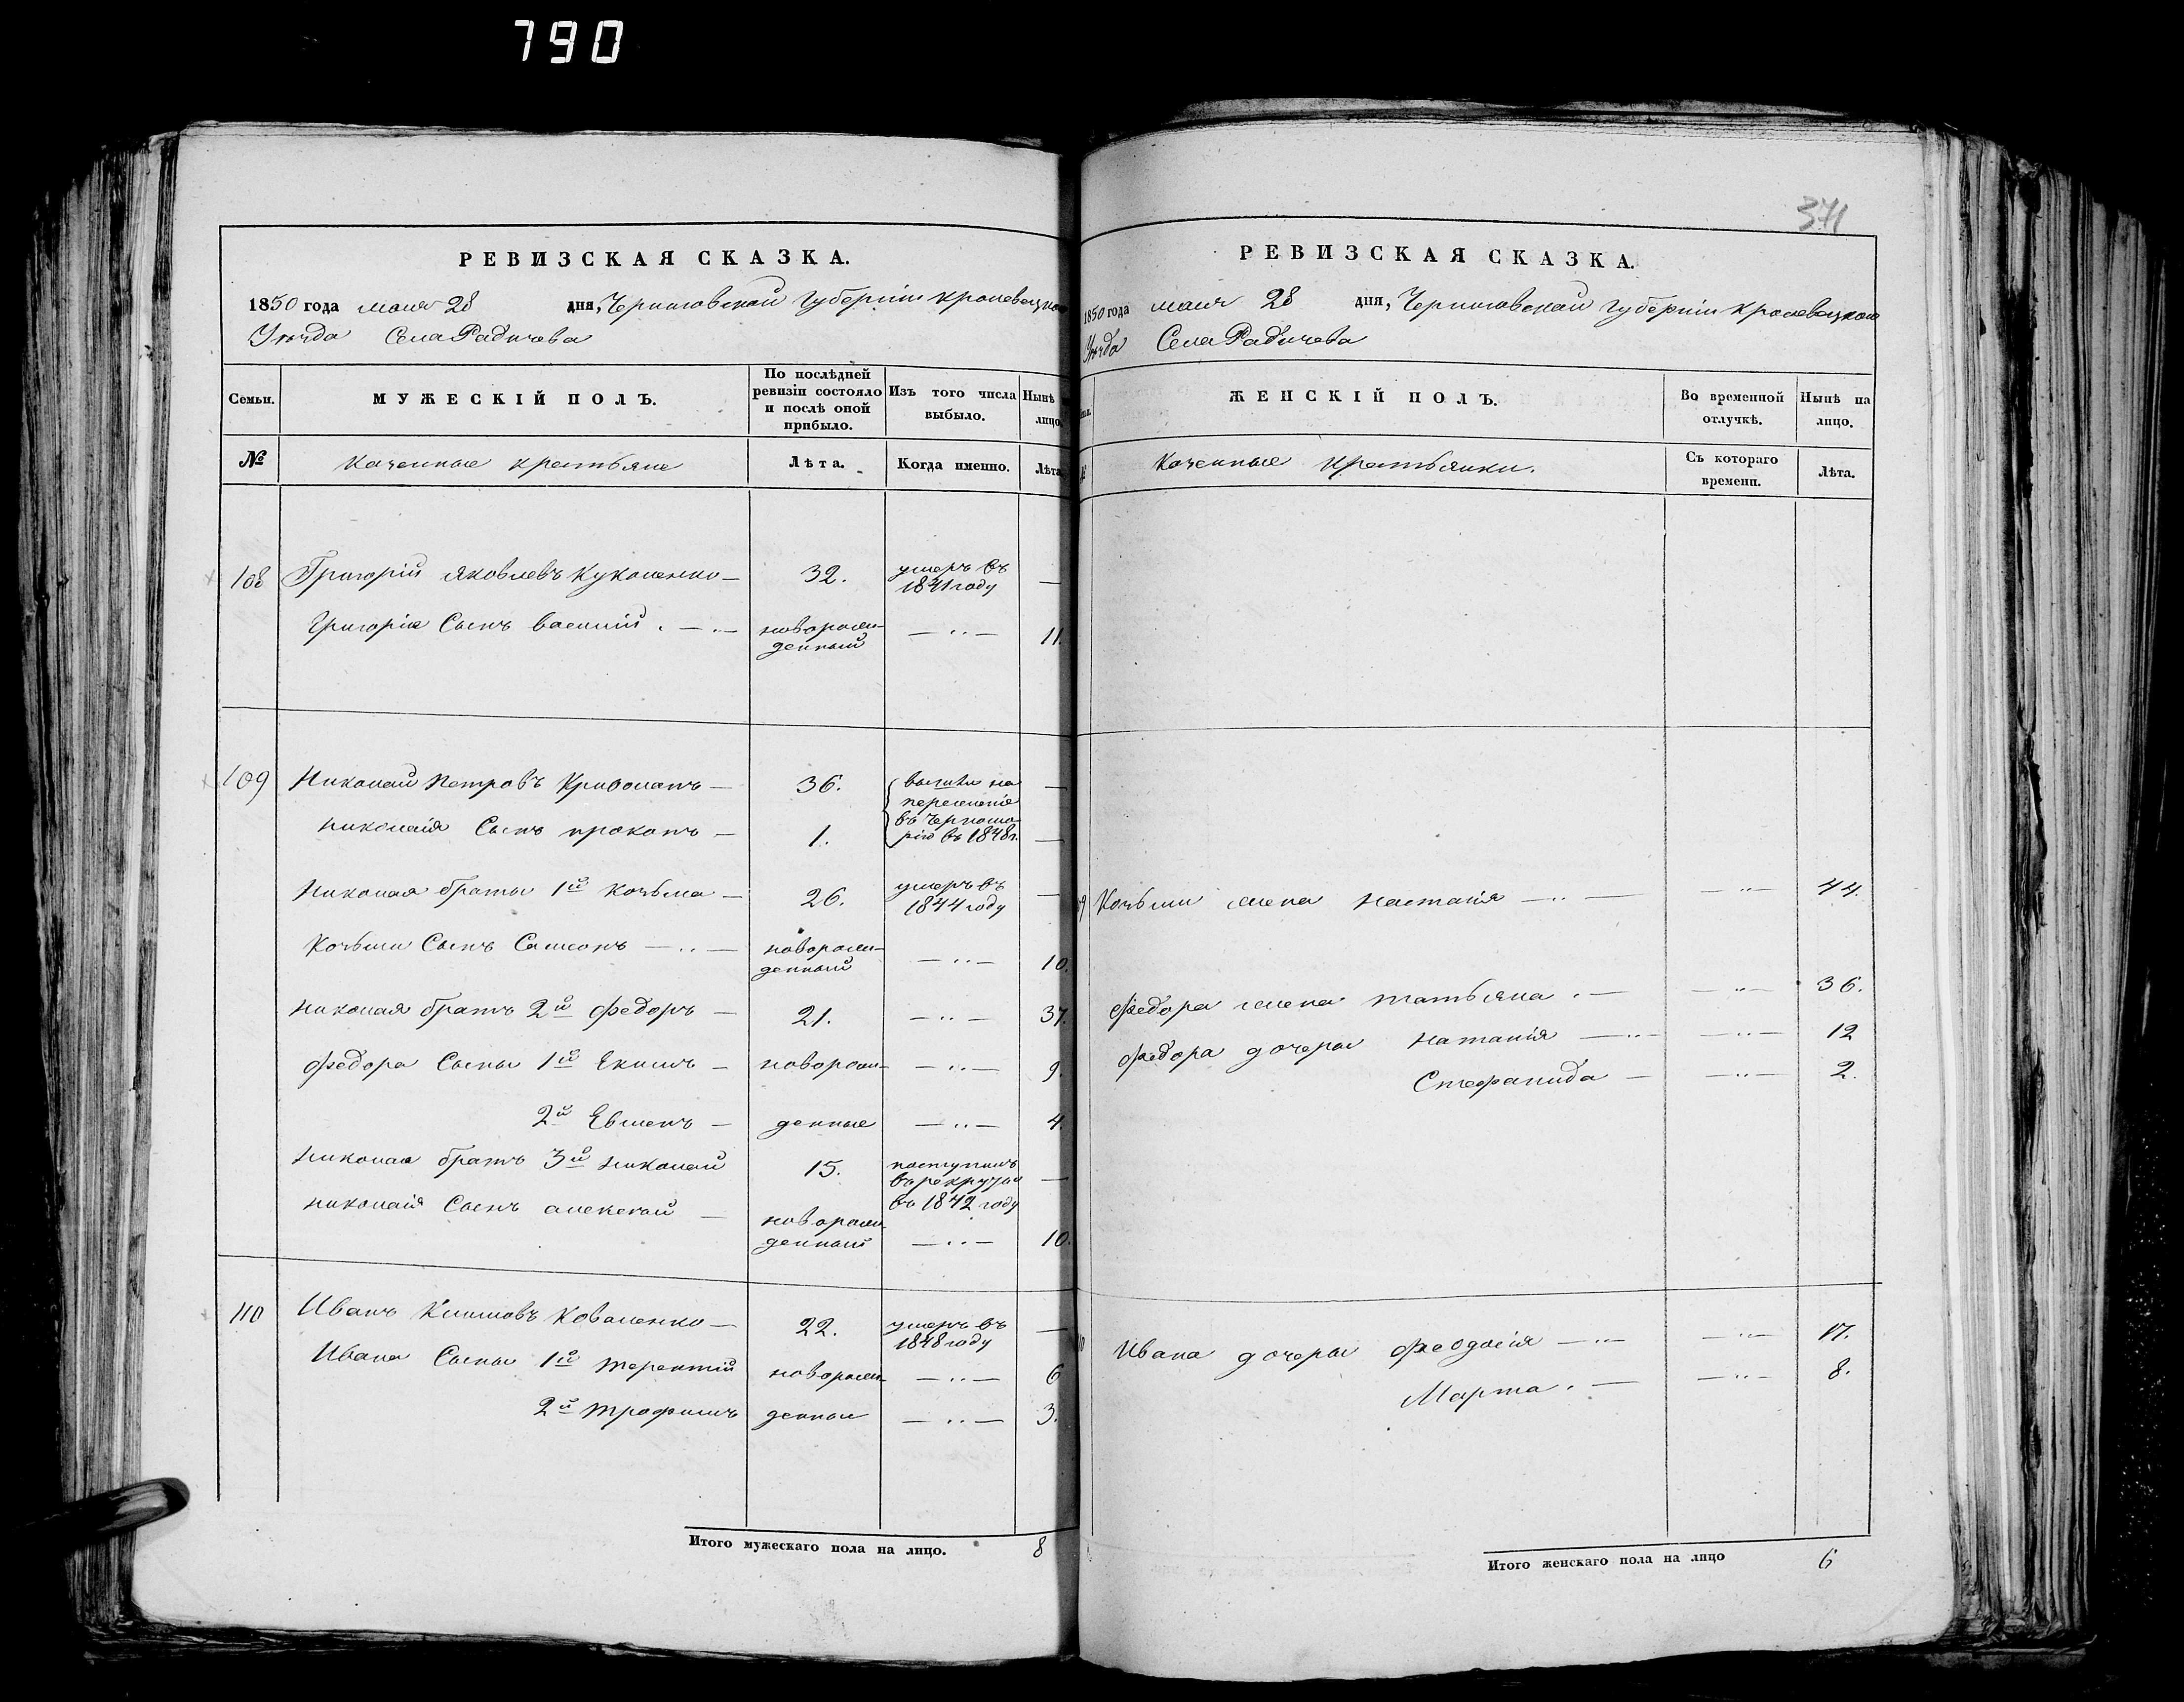 790
371
РЕВИЗСКАЯ СКАЗКА.
1850 года мая 28 дня, Черниговской губерніи Кролевецкого
Уѣзда Села Радичева
Семьи. МУЖЕСКІЙ ПОЛЪ. По послѣдней ревизіи состояло и послѣ оной прибыло. Изъ того числа выбыло. Нынѣ лицо.
№ Казенные крестьяне Лѣта. Когда именно. Лѣта
108 Григорій Яковлевъ Куколенко — 32. умеръ въ 1841 году —
Григорія Сынъ Василій новорожденный — 11.
109 Николай Петровъ — 36. вышли на переселеніе въ Черноморію въ 1848 г. —
Николая Сынъ Прокопъ — 1. —
Николая братья 1й Козьма — 26. умеръ въ 1844 году —
Козьмы Сынъ Самсонъ — новорожденный — 10.
Николая братъ 2й Федоръ — 21. — 37.
Федора Сыны 1й Екимъ — новорож- — 9.
2й Евменъ — денные — 4.
Николая братъ 3й Николай 15. поступилъ въ рекруты въ 1842 году —
Николая Сынъ Алексѣй — новорожденный — 10.
110 Иванъ Климовъ Коваленко — 22. умеръ въ 1848 году —
Ивана Сыны 1й Терентій новорож- — 6
2й Трофимъ денные — 3.
Итого мужескаго пола на лицо. 8
РЕВИЗСКАЯ СКАЗКА.
1850 года мая 28 дня, Черниговской губерніи Кролевецкого
Уѣзда Села Радичева
ЖЕНСКІЙ ПОЛЪ. Во временной отлучкѣ. Нынѣ на лицо.
№ Казенные крестьянки. Съ котораго времени. Лѣта.
Козьмы жена Настасія — 44.
Федора жена Татьяна — 36.
Федора дочеры Наталія — 12
Стефанида — 2.
Ивана дочеры Феодосія — 17.
Марта — 8.
Итого женскаго пола на лицо 6